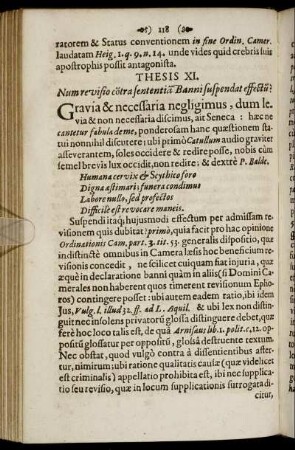 118
ratorem & Status conventionem in fine Ordin. Camer.
laudatam Heig. 1. q. 9. n. 14. unde vides quid crebris suis
apostrophis possit antagonista.
THESIS XI.
Num revisio cõtra sententiã Banni suspendat effectũ?
Gravia & necessaria negligimus, dum le-
via & non necessaria discimus, ait Seneca: hæc ne
cantetur fabula de me, ponderosam hanc quæstionem sta-
tui nonnihil discutere; ubi primò Catullum audio graviter
asseverantem, soles occidere & redire posse, nobis cùm
semel brevis lux occidit, non redire; & dextrè P. Balde.
Humana cervix & Scythico foro
Digna æstimari; funera condimus
Labore nullo, sed profectos
Difficile est revocare maneis.
Suspendi itaq; hujusmodi effectum per admissam re-
visionem quis dubitat? primò, quia facit pro hac opinione
Ordinationis Cam. part. 3. tit. 53. generalis dispositio, quæ
indistinctè omnibus in Camera læsis hoc beneficium re-
visionis concedit, ne scilicet cuiquam fiat injuria, quæ
æquè in declaratione banni quàm in aliis (si Domini Ca-
merales non haberent quos timerent revisionum Epho-
ros) contingere posset: ubi autem eadem ratio, ibi idem
Jus, Vulg. l. illud 32. ff. ad L. Aquil. & ubi lex non distin-
guit nec insolens privatorũ glossa distinguere debet, quæ
ferè hoc loco talis est, de quâ Arnisæus lib. 1. polit. c. 12. op-
positũ glossatur per oppositũ, glossâ destruente textum.
Nec obstat, quod vulgò contra à dissentientibus affer-
tur, nimirum: ubi ratione qualitatis causæ (quæ videlicet
est criminalis) appellatio prohibita est, ibi non est appella-
tio seu revisio, quæ in locum supplicationis surrogata di-
citur,